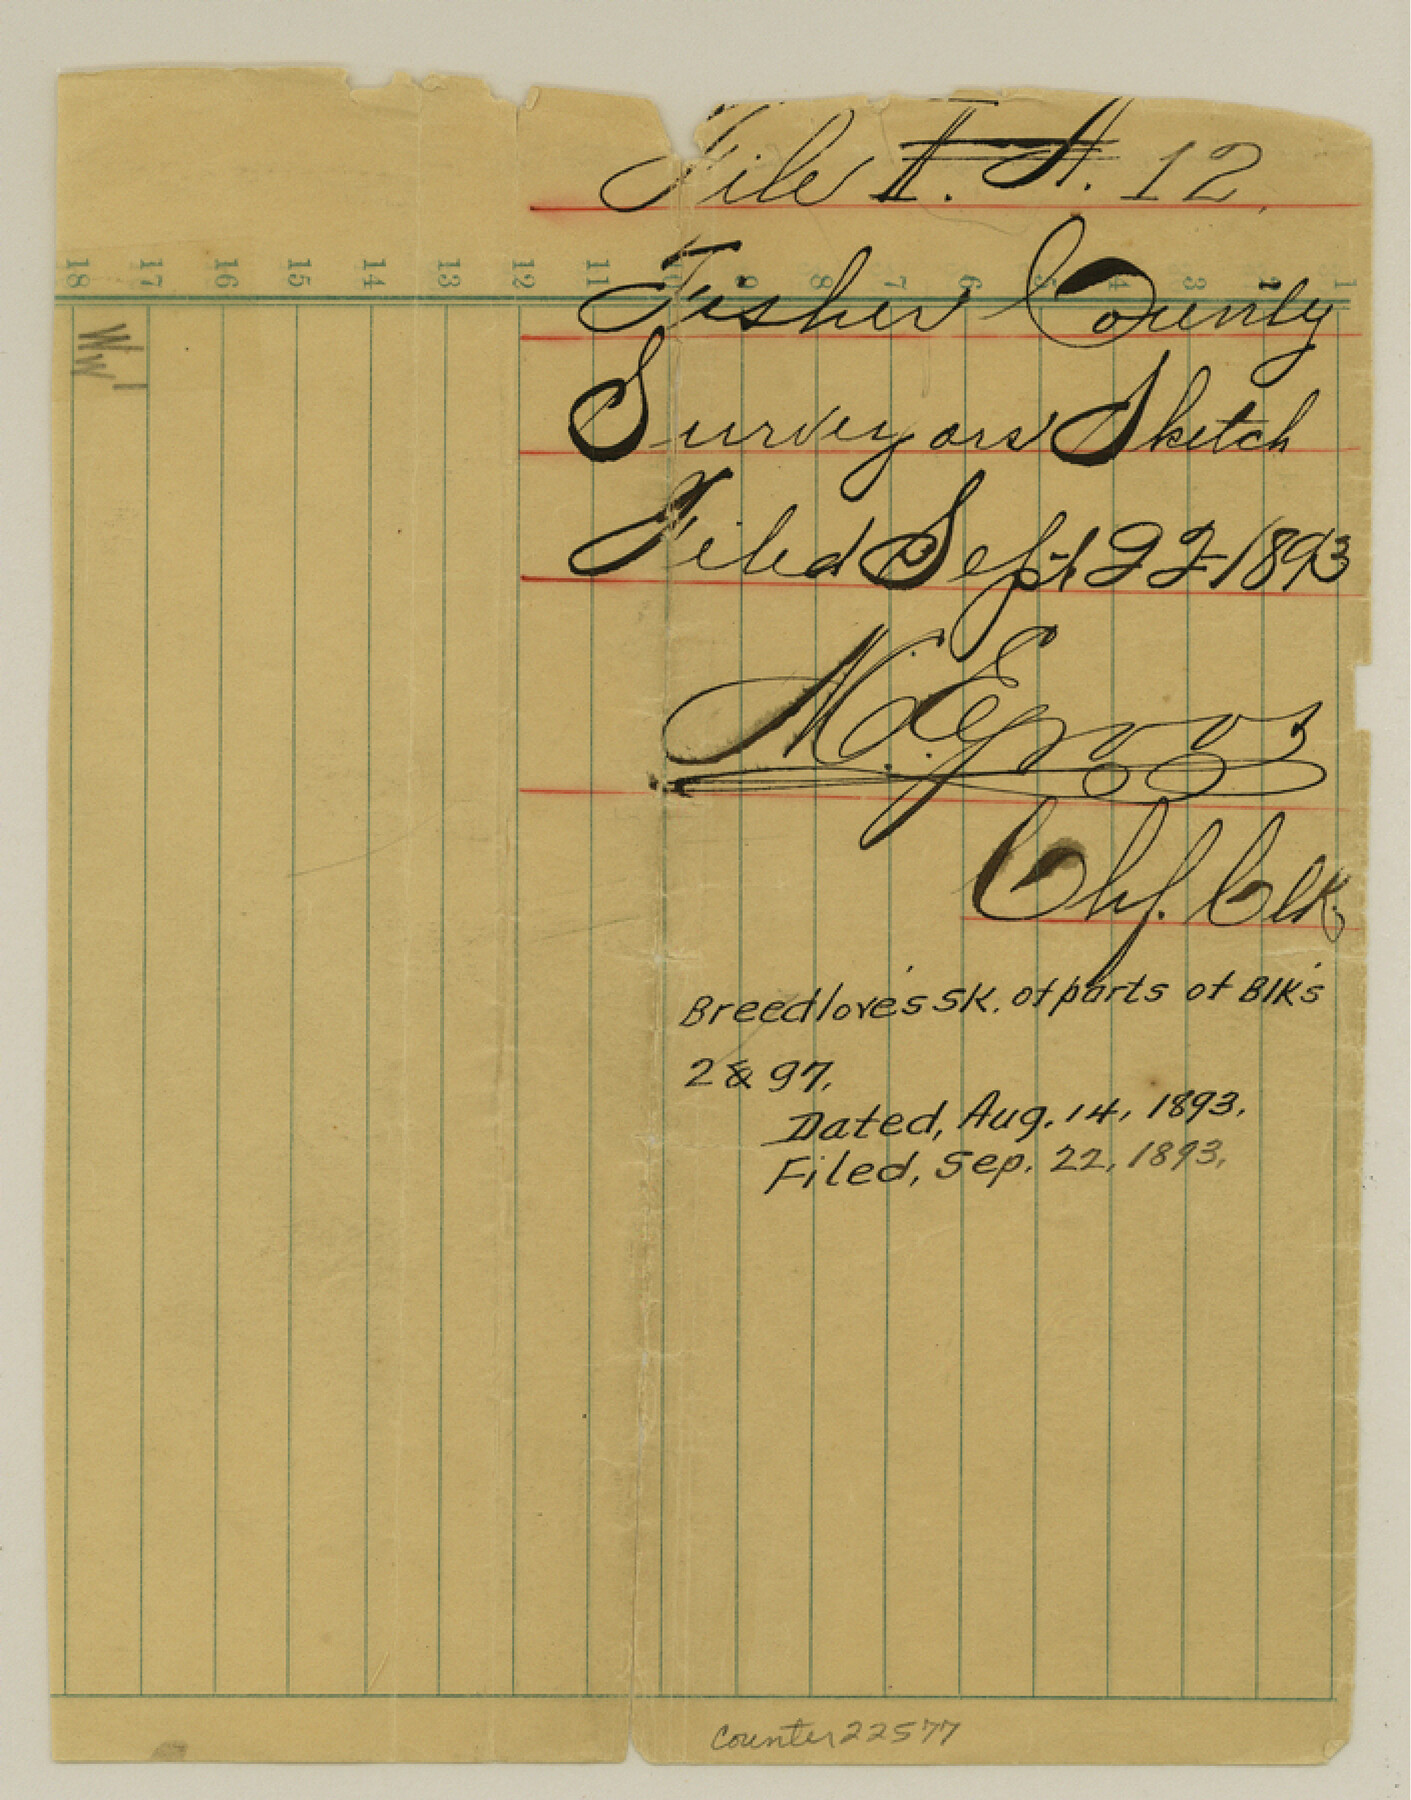 File 12.
Fisher County
18 17 16 15 14 13 12 11 10 9 8 7 6 5 4 3 2 1
Surveyors Sketch
Filed Sept 22 1893
M. C. Groos
Chf. Clk.
Breedlove's sk. of parts of Blk's
2 & 97.
Dated, Aug. 14, 1893.
Filed, Sep. 22, 1893.
counter 22577